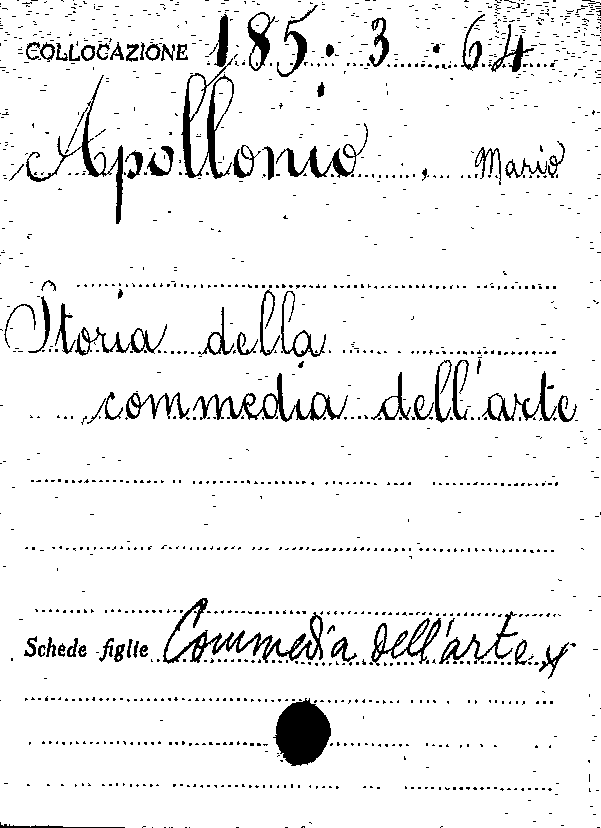 COLLOCAZIONE 185.3.64
Apollonio, Mario
Storia della
commedia dell'arte
Schede figlie Commedia dell'arte x